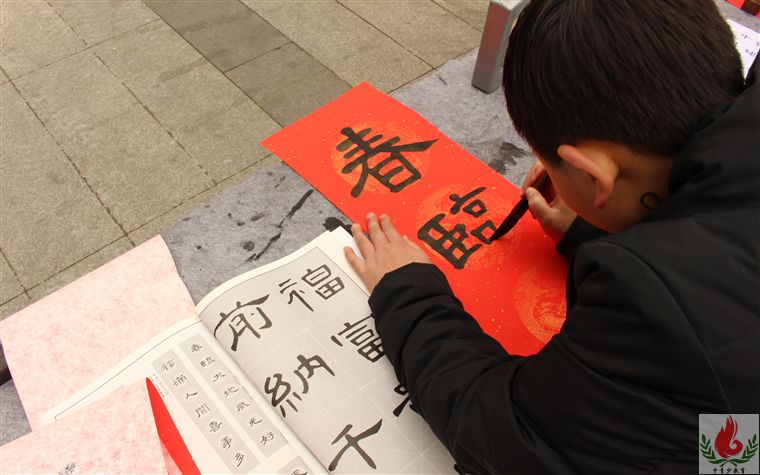 春臨
福富
前納千
春臨大地風光好
福滿人間喜事多